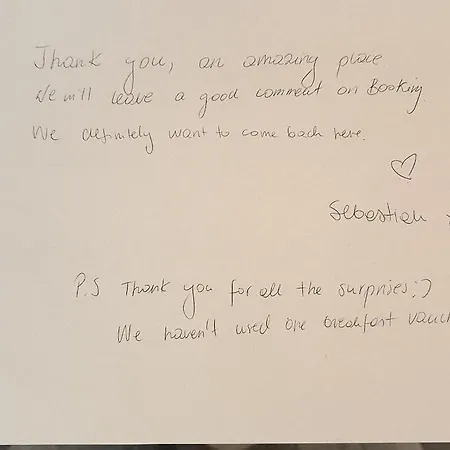 Thank you, an amazing place
We will leave a good comment on Booking.
We definitely want to come back here.
♡
Sebastian
P.S Thank you for all the surprises:)
We haven't used one breakfast vauch